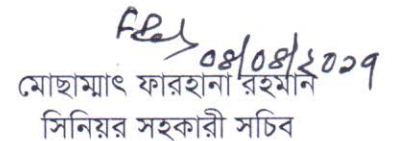 ০৪/০৪/২০১৭
মোছাম্মাৎ ফারহানা রহমান
সিনিয়র সহকারী সচিব